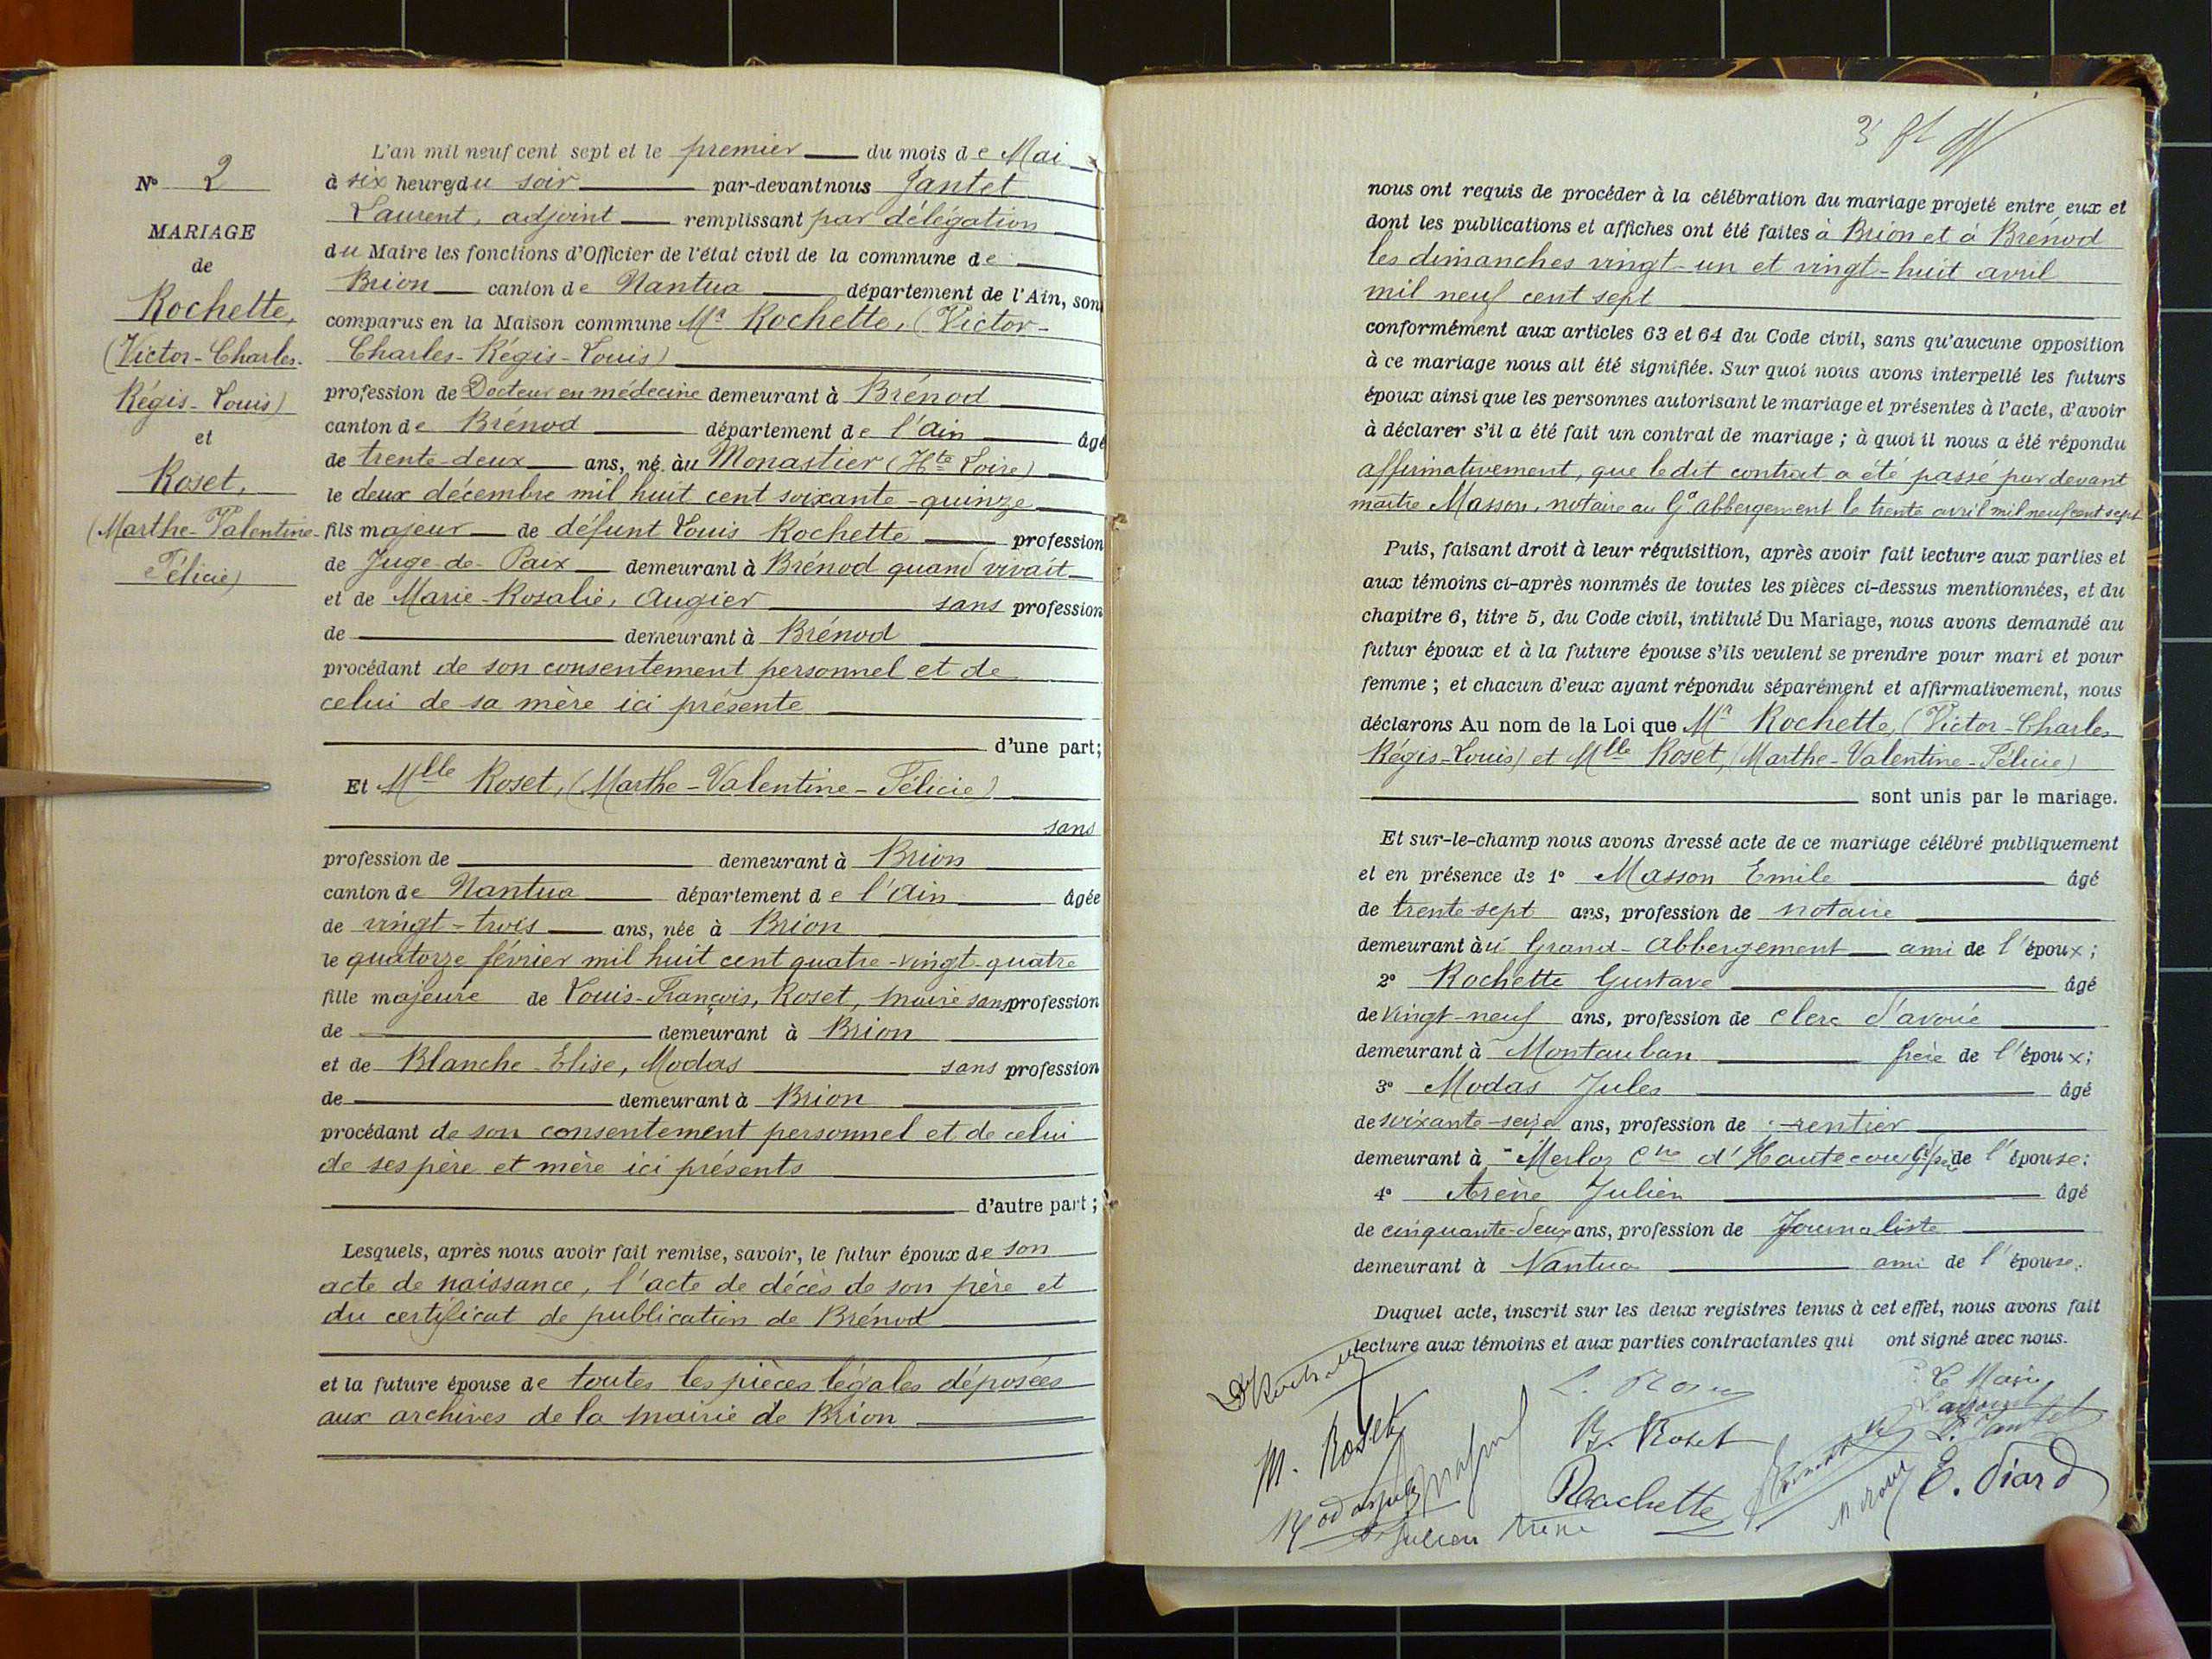 N° 2
MARIAGE
de
Rochette,
(Victor-Charles-
Régis-Louis)
et
Roset,
(Marthe-Valentine-
Félicie)
L'an mil neuf cent sept et le premier du mois de Mai
à six heures du soir par-devant nous Jantet
Laurent, adjoint remplissant par délégation
du Maire les fonctions d'Officier de l'état civil de la commune de
Brion canton de Nantua département de l'Ain, sont
comparus en la Maison commune Mr Rochette, (Victor-
Charles-Régis-Louis)
profession de Docteur en médecine demeurant à Brénod
canton de Brénod département de l'Ain âgé
de trente-deux ans, né au Monastier (Hte Loire)
le deux décembre mil huit cent soixante-quinze
fils majeur de défunt Louis Rochette profession
de Juge-de-Paix demeurant à Brénod quand vivait
et de Marie-Rosalie, Augier sans profession
de demeurant à Brénod
procédant de son consentement personnel et de
celui de sa mère ici présente
d'une part;
Et Mlle Roset, (Marthe-Valentine-Félicie)
sans
profession de demeurant à Brion
canton de Nantua département de l'Ain âgée
de vingt-trois ans, née à Brion
le quatorze février mil huit cent quatre-vingt-quatre
fille majeure de Louis-François, Roset, maire sans profession
de demeurant à Brion
et de Blanche-Elise, Modas sans profession
de demeurant à Brion
procédant de son consentement personnel et de celui
de ses père et mère ici présents
d'autre part;
Lesquels, après nous avoir fait remise, savoir, le futur époux de son
acte de naissance, l'acte de décès de son père et
du certificat de publication de Brénod
et la future épouse de toutes les pièces légales déposées
aux archives de la mairie de Brion
3
nous ont requis de procéder à la célébration du mariage projeté entre eux et
dont les publications et affiches ont été faites à Brion et à Brenod
les dimanches vingt-un et vingt-huit avril
mil neuf cent sept
conformément aux articles 63 et 64 du Code civil, sans qu'aucune opposition
à ce mariage nous ait été signifiée. Sur quoi nous avons interpellé les futurs
époux ainsi que les personnes autorisant le mariage et présentes à l'acte, d'avoir
à déclarer s'il a été fait un contrat de mariage; à quoi il nous a été répondu
affirmativement, que le dit contrat a été passé par devant
maître Masson, notaire au Gd Abbergement le trente avril mil neuf cent sept
Puis, faisant droit à leur réquisition, après avoir fait lecture aux parties et
aux témoins ci-après nommés de toutes les pièces ci-dessus mentionnées, et du
chapitre 6, titre 5, du Code civil, intitulé Du Mariage, nous avons demandé au
futur époux et à la future épouse s'ils veulent se prendre pour mari et pour
femme; et chacun d'eux ayant répondu séparément et affirmativement, nous
déclarons Au nom de la Loi que Mr Rochette, (Victor-Charles
Régis-Louis) et Mlle Roset, (Marthe-Valentine-Félicie)
sont unis par le mariage.
Et sur-le-champ nous avons dressé acte de ce mariage célébré publiquement
et en présence de 1° Masson Emile âgé
de trente-sept ans, profession de notaire
demeurant au Grand-Abbergement ami de l'époux;
2° Rochette Gustave âgé
de vingt-neuf ans, profession de clerc d'avoué
demeurant à Montauban frère de l'époux;
3° Modas Jules âgé
de soixante-seize ans, profession de rentier
demeurant à Merloz Cne d'Hautecour Gd père de l'épouse:
4° Arène Julien âgé
de cinquante-deux ans, profession de Journaliste
demeurant à Nantua ami de l'épouse.
Duquel acte, inscrit sur les deux registres tenus à cet effet, nous avons fait
lecture aux témoins et aux parties contractantes qui ont signé avec nous.
Dr Rochette
M. Roset
Modas Jules
Julien Arène
L. Roset
B. Roset
Rochette
Le Maire
L'adjoint
L. Jantet
E. Piard